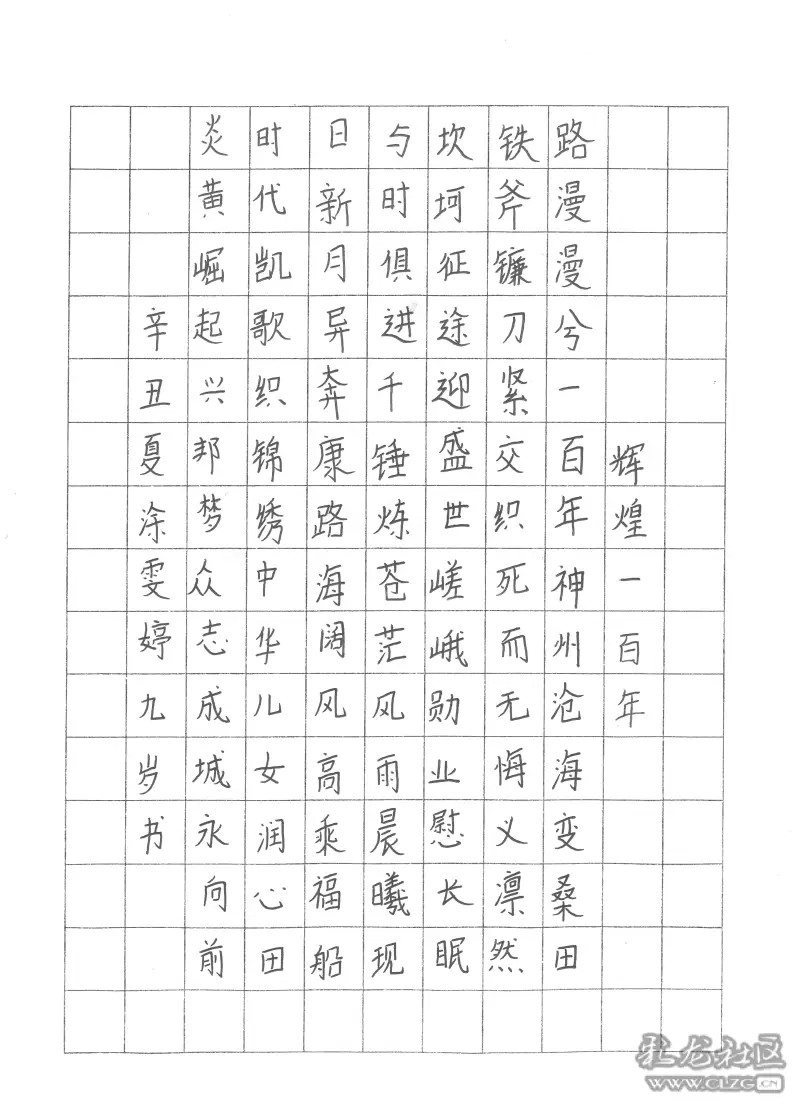 辉煌一百年
路漫漫兮一百年神州沧海变桑田
铁斧镰刀紧交织死而无悔义凛然
坎坷征途迎盛世嵯峨勋业慰长眠
与时俱进千锤炼苍茫风雨晨曦现
日新月异奔康路海阔风高乘福船
时代凯歌织锦绣中华儿女润心田
炎黄崛起兴邦梦众志成城永向前
辛丑夏涂雯婷九岁书
彩龙社区
WWW.CLZG.CN